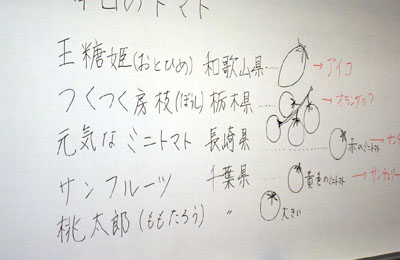 今日のトマト
王糖姫(おとひめ) 和歌山県… →アイコ
つくつく房枝(ぼうし) 栃木県… →オランダ?
元気なミニトマト 長崎県… 赤のミニトマト →サン
サンフルーツ 千葉県… 黄色のミニトマト →サンチェリー
桃太郎(ももたろう) 〃 大きい